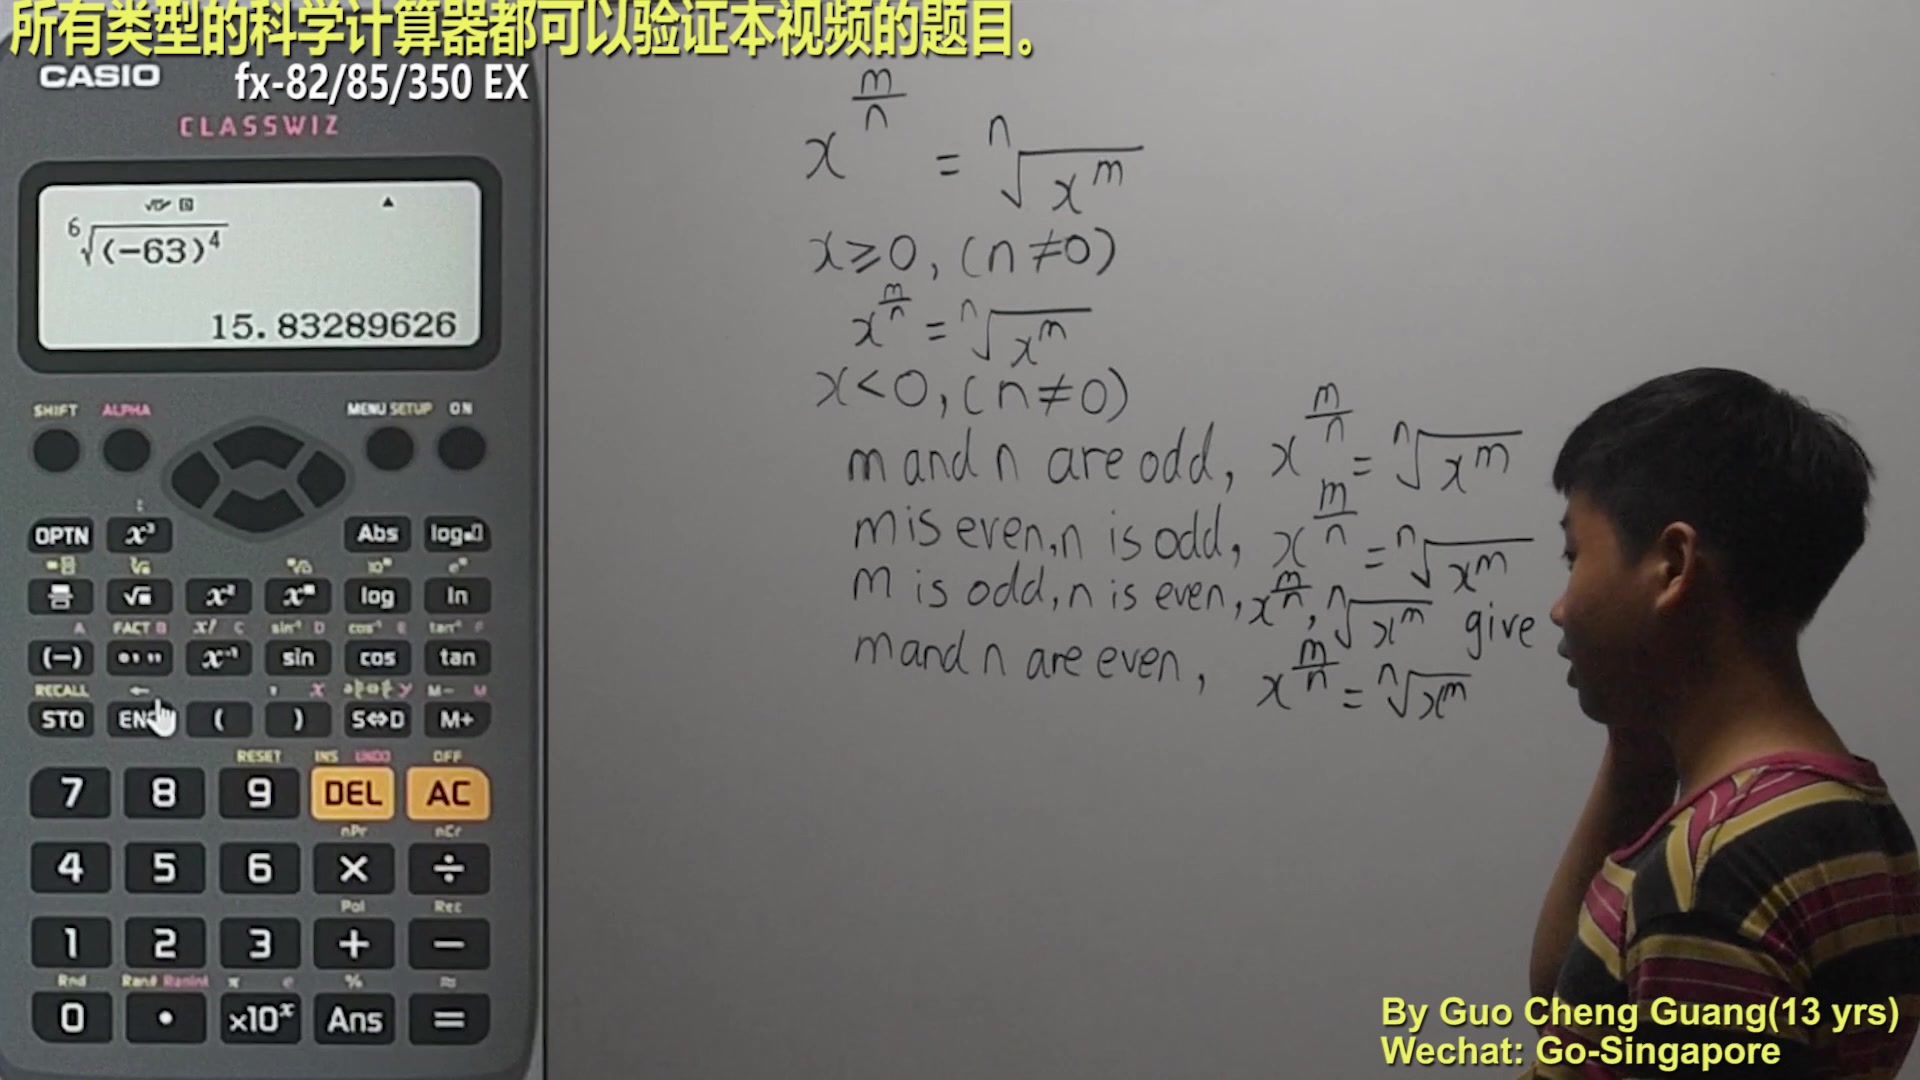 所有类型的科学计算器都可以验证本视频的题目。
CASIO
fx-82/85/350 EX
CLASSWIZ
⁶√(-63)⁴
15.83289626
SHIFT ALPHA MENU SETUP ON
OPTN x³ Abs log
√ x² x log ln
A FACT B x! C sin⁻¹ D cos⁻¹ E tan⁻¹ F
(-) x⁻¹ sin cos tan
RECALL ← , x y M- M
STO ENG ( ) S⇔D M+
RESET INS UNDO OFF
7 8 9 DEL AC
nPr nCr
4 5 6 × ÷
Pol Rec
1 2 3 + −
Rnd Ran# RanInt π e % ≈
0 • ×10ˣ Ans =
x^(m/n) = ⁿ√(x^m)
x≥0, (n≠0)
x^(m/n) = ⁿ√(x^m)
x<0, (n≠0)
m and n are odd, x^(m/n) = ⁿ√(x^m)
m is even, n is odd, x^(m/n) = ⁿ√(x^m)
m is odd, n is even, x^(m/n), ⁿ√(x^m) give
m and n are even, x^(m/n) = ⁿ√(x^m)
By Guo Cheng Guang(13 yrs)
Wechat: Go-Singapore